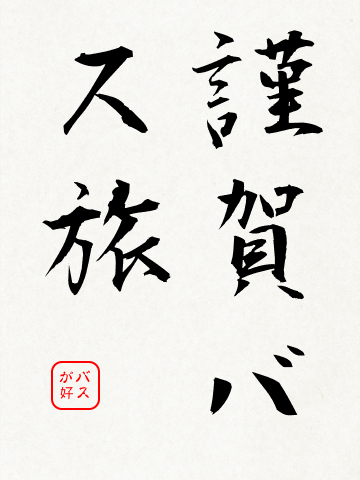 謹賀バ
ス旅
バス
が好